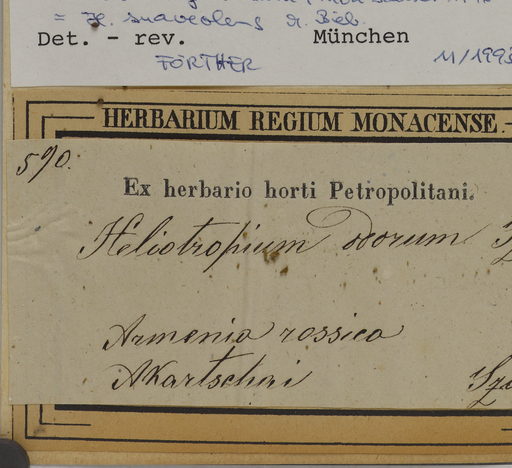 = H. suaveolens M. Bieb.
Det. - rev. München
FÖRTHER 11/1993
HERBARIUM REGIUM MONACENSE.
590.
Ex herbario horti Petropolitani.
Heliotropium odorum
Armenia rossica
Akartschini